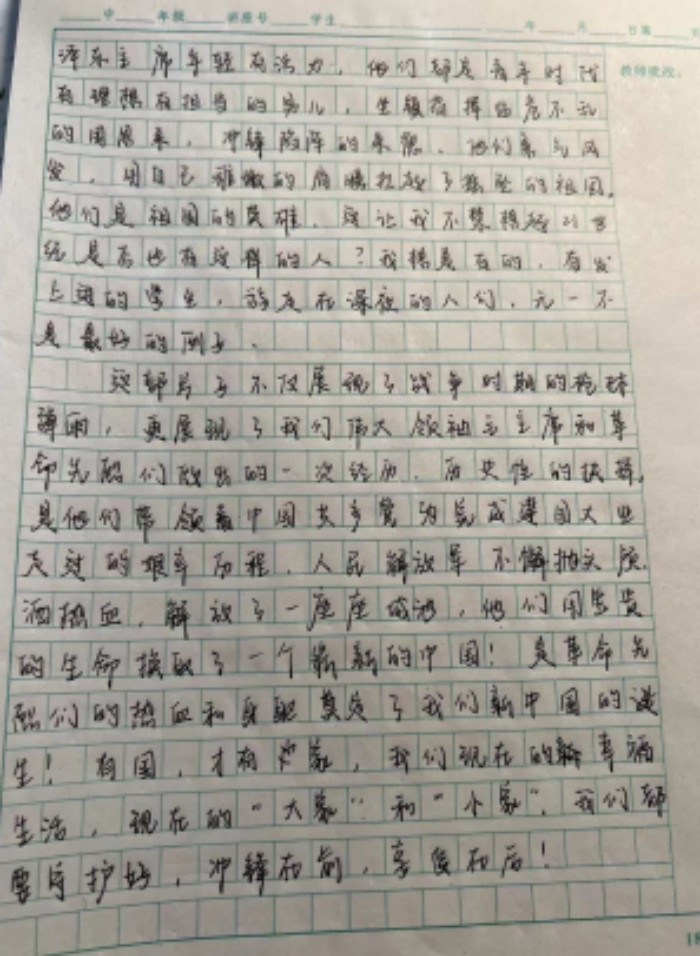 中 年级 班座号 学生 年 月 日第 页
教师批改:
泽东主席年轻有活力,他们都是青年时代
有理想有担当的男儿,坐镇指挥临危不乱
的周恩来,冲锋陷阵的朱德,他们意气风
发,用自己稚嫩的肩膀扛起了摇坠的祖国。
他们是祖国的英雄,这让我不禁想起21世
纪是否也有这样的人?我想是有的,奋发
上进的学生,奔走在深夜的人们,无一不
是最好的例子。
这部片子不仅展现了战争时期的枪林
弹雨,更展现了我们伟大领袖毛主席和革
命先烈们做出的一次经历,历史性的抉择,
是他们带领着中国共产党为完成建国大业
走过的艰辛历程,人民解放军不懈抛头颅
洒热血,解放了一座座城池,他们用宝贵
的生命换取了一个崭新的中国!是革命先
烈们的热血和身躯奠定了我们新中国的诞
生!有国,才有家,我们现在的幸福
生活,现在的“大家”和“小家”,我们都
要守护好,冲锋在前,享受在后!
18